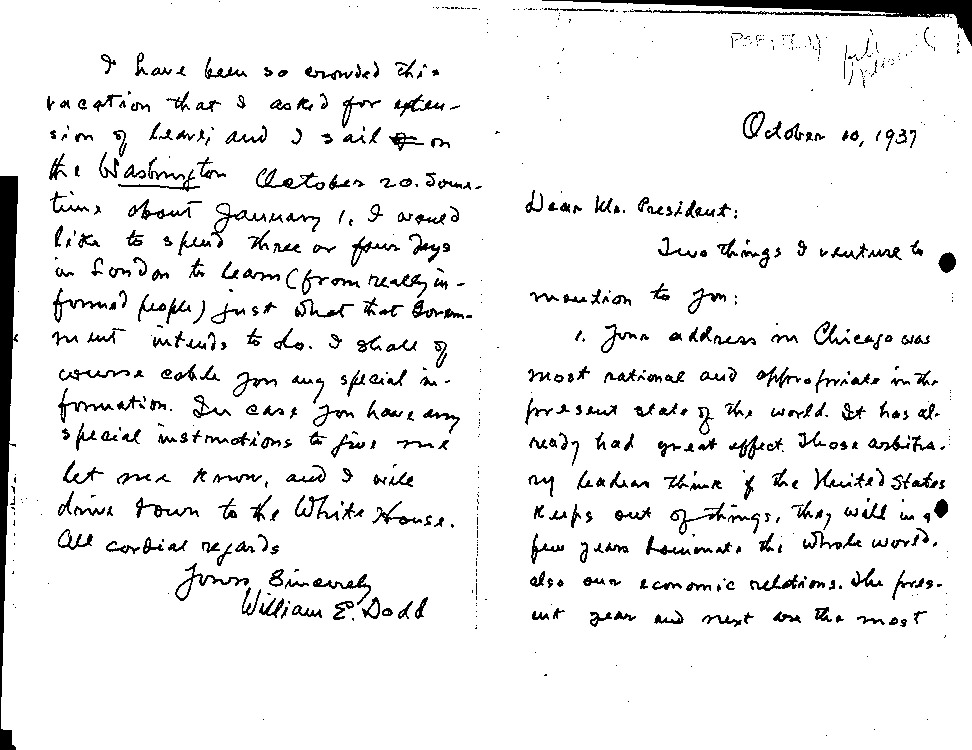 October 10, 1937
Dear Mr. President:
Two things I venture to
mention to you:
1. Your address in Chicago was
most rational and appropriate in the
present state of the world. It has al-
ready had great effect. Those arbitra-
ry leaders think if the United States
keeps out of things, they will in a
few years dominate the whole world,
also our economic relations. The pres-
ent year and next are the most
I have been so crowded this
vacation that I asked for exten-
sion of leave; and I sail on
the Washington October 20. Some-
time about January 1, I would
like to spend three or four days
in London to learn (from really in-
formed people) just what that Govern-
ment intends to do. I shall of
course cable you any special in-
formation. In case you have any
special instructions to give me
let me know, and I will
drive down to the White House.
All cordial regards
Yours Sincerely
William E. Dodd